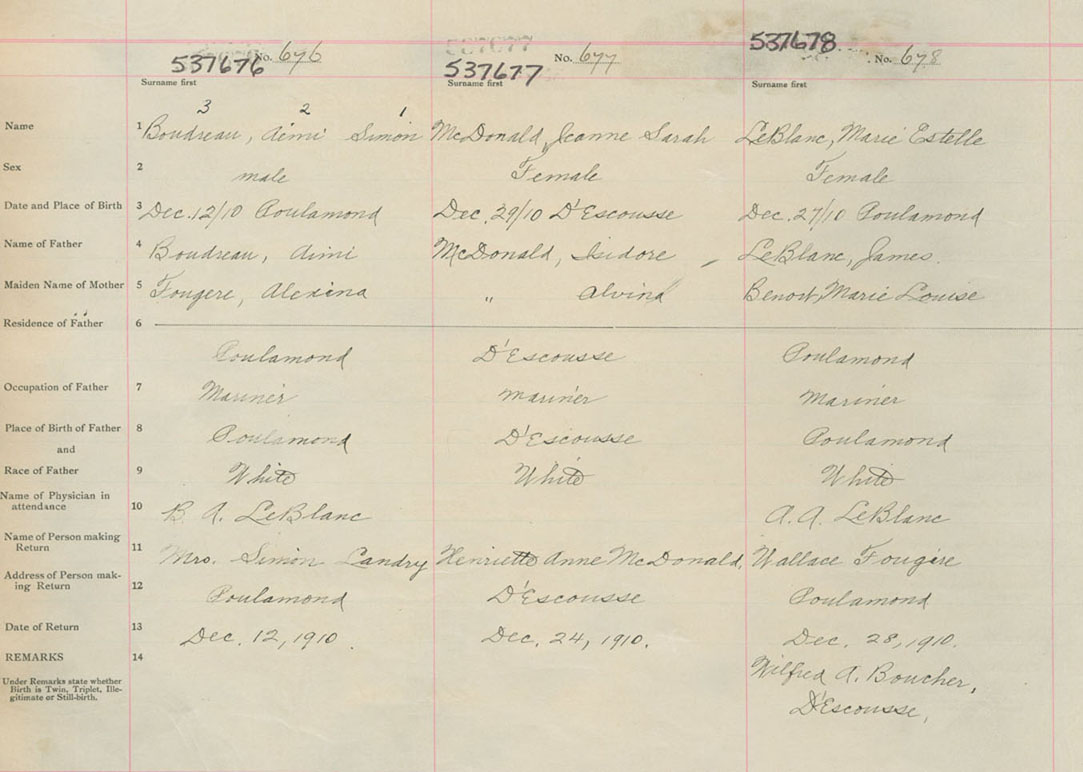 537676 No. 676 537677 No. 677 537678 No. 678
Surname first Surname first Surname first
3 2 1
Name 1 Boudreau, Aimi Simon McDonald, Jeanne Sarah LeBlanc, Marie Estelle
Sex 2 male Female Female
Date and Place of Birth 3 Dec. 12/10 Poulamond Dec. 29/10 D'Escousse Dec. 27/10 Poulamond
Name of Father 4 Boudreau, Aimi McDonald, Isidore LeBlanc, James.
Maiden Name of Mother 5 Fougere, Alexina " Alvina Benoit, Marie Louise
Residence of Father 6
Poulamond D'Escousse Poulamond
Occupation of Father 7 Mariner mariner mariner
Place of Birth of Father 8 Poulamond D'Escousse Poulamond
and
Race of Father 9 White White White
Name of Physician in
attendance 10 B. A. LeBlanc A. A. LeBlanc
Name of Person making
Return 11 Mrs. Simon Landry Henriette Anne McDonald, Wallace Fougère
Address of Person mak-
ing Return 12 Poulamond D'Escousse Poulamond
Date of Return 13 Dec. 12, 1910. Dec. 24, 1910. Dec. 28, 1910.
REMARKS 14 Wilfred A. Boucher,
D'Escousse,
Under Remarks state whether
Birth is Twin, Triplet, Ille-
gitimate or Still-birth.